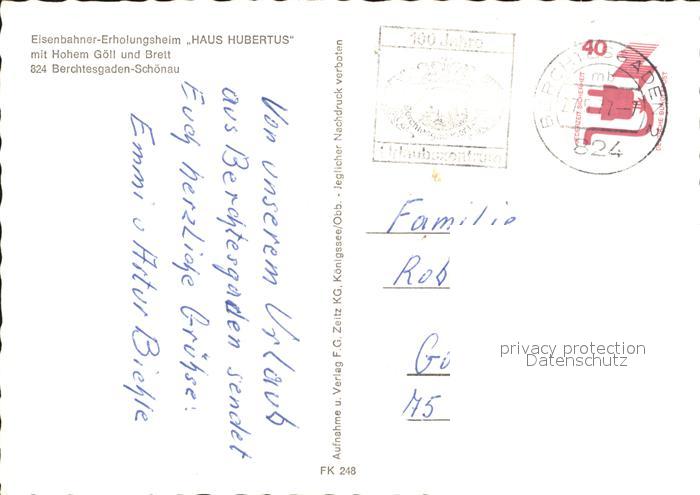 Eisenbahner-Erholungsheim „HAUS HUBERTUS"
mit Hohem Göll und Brett
824 Berchtesgaden-Schönau
Von unserem Urlaub
aus Berchtesgaden sendet
Euch herzliche Grüße:
Emmi u Artur Biehle
Aufnahme u. Verlag F.G. Zeitz KG, Königssee/Obb. - Jeglicher Nachdruck verboten
FK 248
100 Jahre
Urlaubszentrum
BERCHTESGADEN 3
mb
824
40
JEDERZEIT SICHERHEIT
DEUTSCHE BUNDESPOST
Familie
Rob
Gu
75
privacy protection
Datenschutz